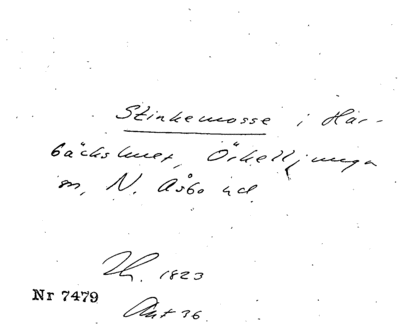 Stinkemosse i Här-
bäckshult, Örkelljunga
sn, N. Åsbo hd.
1823
Nr 7479
Akt 36.